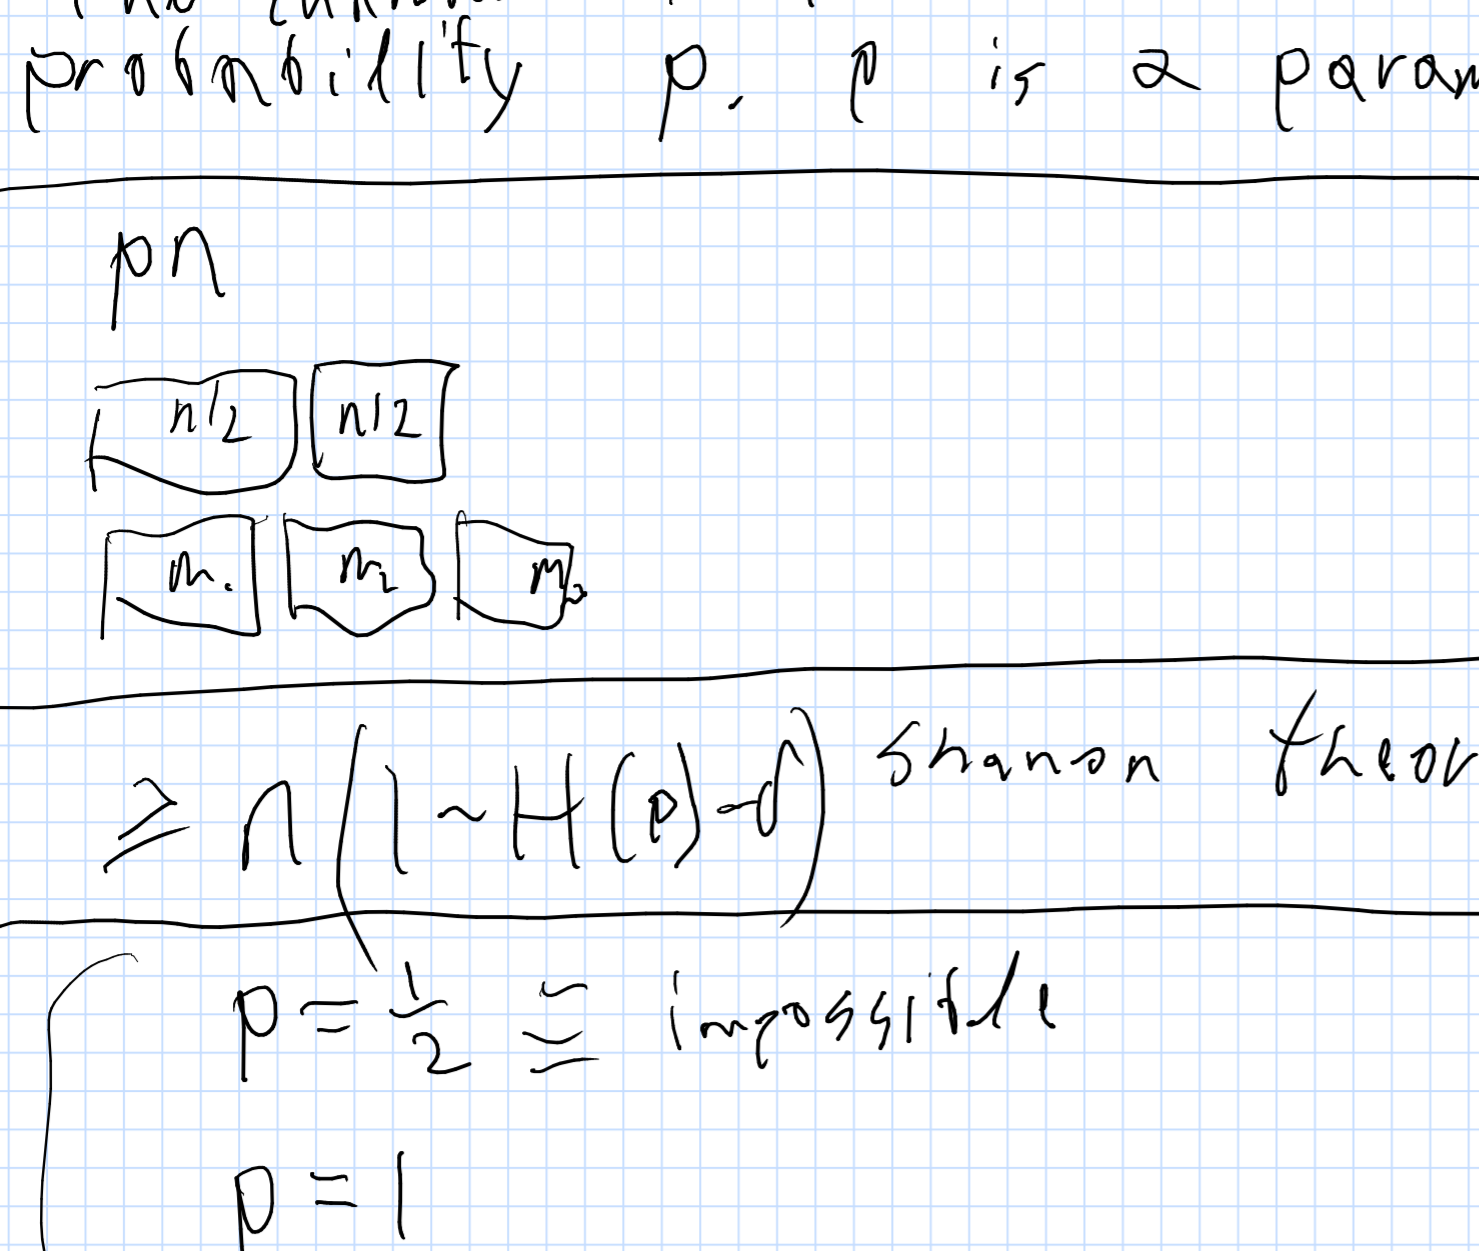 probability p. p is a param
pn
n/2 n/2
m₁ m₂ m₃
≥ n(1 - H(p) - δ) Shanon theor
p = 1/2 ≅ impossible
p = 1